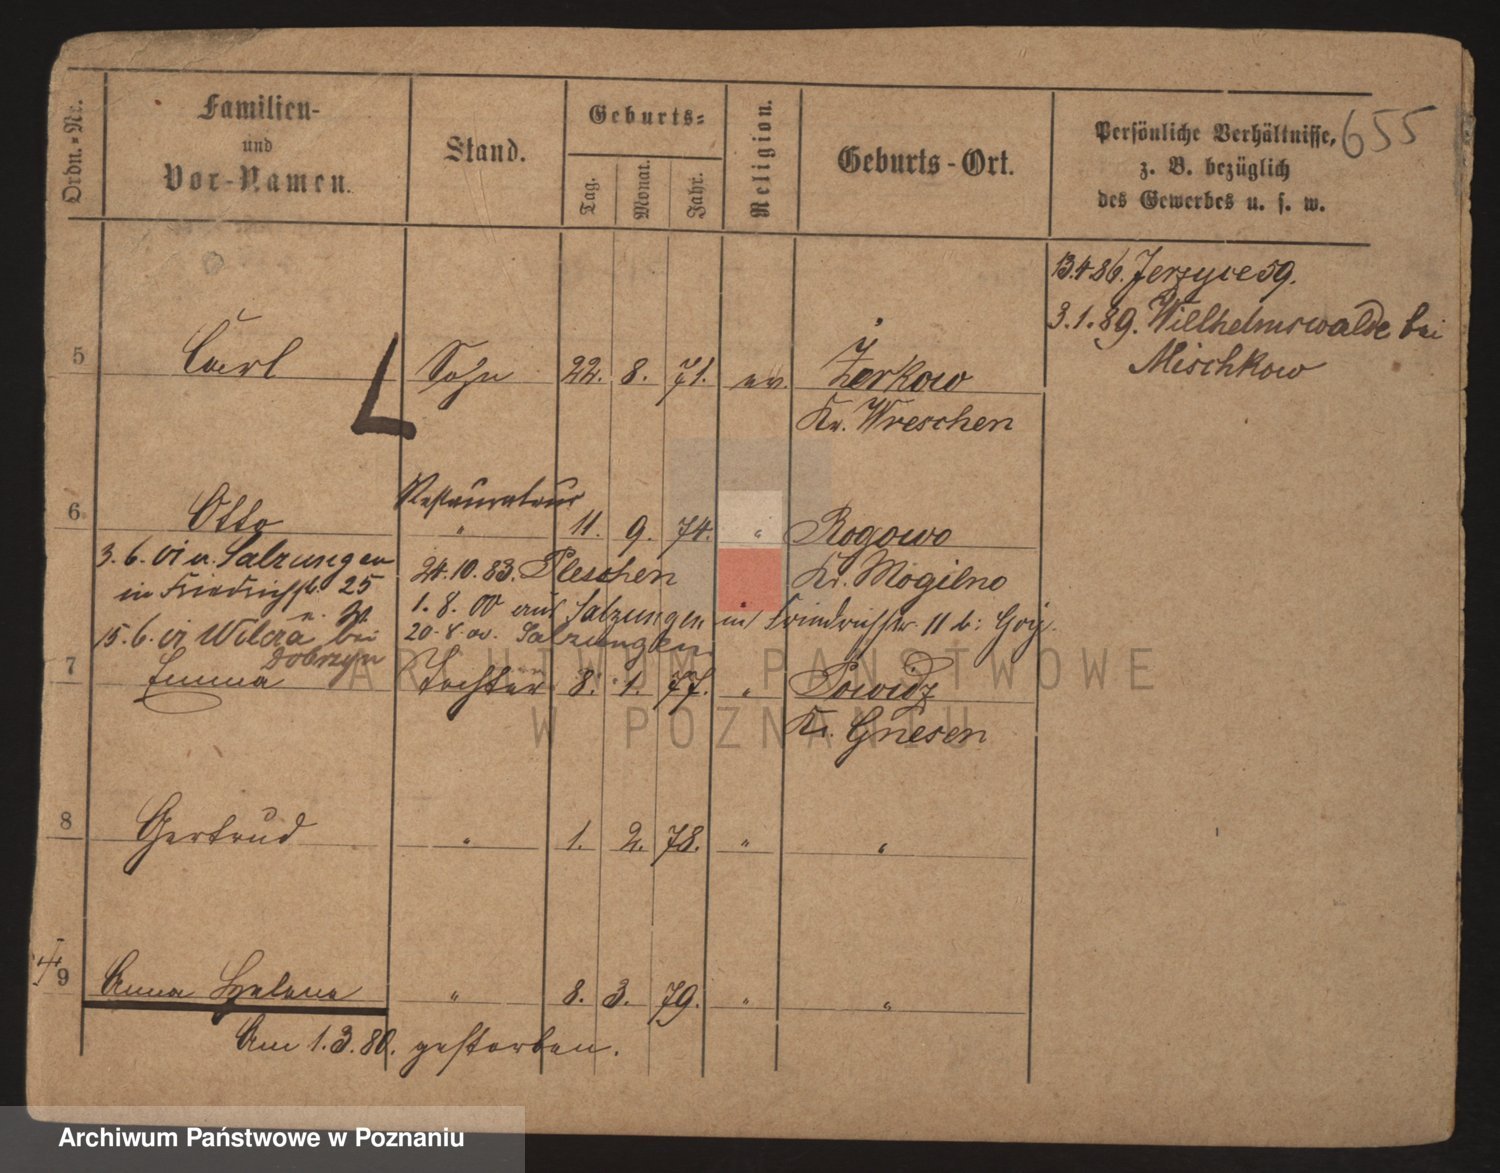 Ordn.-Nr.
Familien-
und
Vor-Namen.
Stand.
Geburts-
Tag.
Monat.
Jahr.
Religion.
Geburts-Ort.
Persönliche Verhältnisse,
z. B. bezüglich
des Gewerbes u. s. w.
655
13.4.86. Jerzyce 59.
3.1.89. Willhelmswalde bei
Mischkow
5 Carl Sohn 22. 8. 71. ev. Żerkow
Kr. Wreschen
Restaurateur
6. Otto " 11. 9. 74. " Rogowo
Kr. Mogilno
3.6.01 v. Salzungen
in Friedrichstr. 25
15.6.01 Wilcza bei
Dobrzyn
24.10.83. Pleschen
1.8.00 aus Salzungen in Friedrichstr. 11 b:
20.8.00. Salzungen
7 Emma Tochter 8. 1. 77. " Powidz
Kr. Gnesen
8 Gertrud " 1. 2. 78. " "
9 Anna Helene " 8. 3. 79. " "
Am 1.3.80. gestorben.
ARCHIWUM PAŃSTWOWE
W POZNANIU
Archiwum Państwowe w Poznaniu